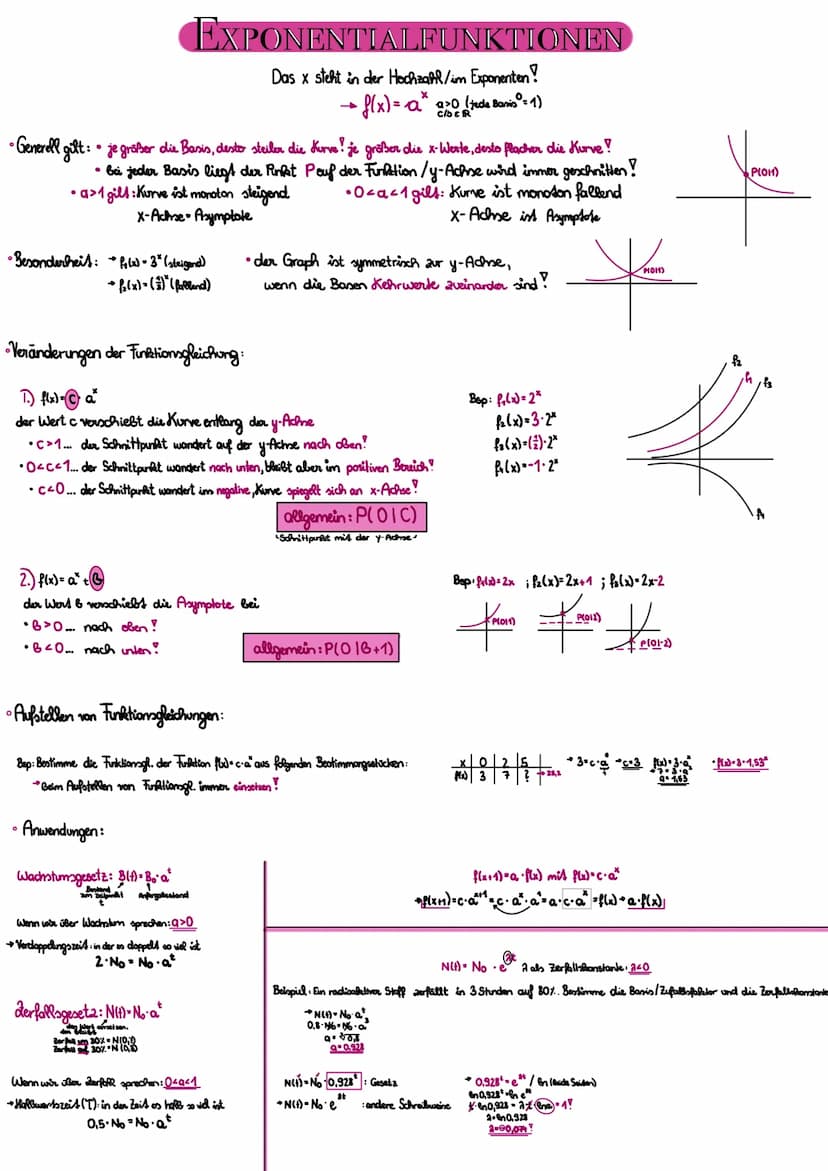 EXPONENTIALFUNKTIONEN
Das x steht in der Hochzahl/im Exponenten!
→ f(x) = a^x a>0 (jede Basis^0 = 1)
c/b ∈ ℝ
• Generell gilt: • je größer die Basis, desto steiler die Kurve! je größer die x-Werte, desto flacher die Kurve!
• Bei jeder Basis liegt der Punkt P auf der Funktion/y-Achse wird immer geschnitten!
• a>1 gilt: Kurve ist monoton steigend • 0<a<1 gilt: Kurve ist monoton fallend
x-Achse = Asymptote x-Achse ist Asymptote
P(0|1)
• Besonderheit: → f₁(x) = 3^x (steigend) • der Graph ist symmetrisch zur y-Achse,
→ f₂(x) = (1/3)^x (fallend) wenn die Basen Kehrwerte zueinander sind!
P(0|1)
• Veränderungen der Funktionsgleichung:
1.) f(x) = c · a^x
der Wert c verschiebt die Kurve entlang der y-Achse
• c>1... der Schnittpunkt wandert auf der y-Achse nach oben!
• 0<c<1... der Schnittpunkt wandert nach unten, bleibt aber im positiven Bereich!
• c<0... der Schnittpunkt wandert im negative, Kurve spiegelt sich an x-Achse!
allgemein: P(0|C)
Schnittpunkt mit der y-Achse
Bsp: f₁(x) = 2^x
f₂(x) = 3·2^x
f₃(x) = (1/2)·2^x
f₁(x) = -1·2^x
f₂
f₁
f₃
f₄
2.) f(x) = a^x + b
der Wert b verschiebt die Asymptote bei
• b>0... nach oben!
• b<0... nach unten!
allgemein: P(0|b+1)
Bsp: f₁(x) = 2x ; f₂(x) = 2x+1 ; f₃(x) = 2x-2
P(0|1) P(0|2) P(0|-2)
• Aufstellen von Funktionsgleichungen:
Bsp: Bestimme die Funktionsgl. der Funktion f(x) = c·a^x aus folgenden Bestimmungsstücken:
→ Beim Aufstellen von Funktionsgl. immer einsetzen!
x | 0 | 2 | 5 |
f(x) | 3 | 7 | ? | → 25,2
→ 3 = c·a^0 → c = 3 f(x) = 3·a^x • f(x) = 3·1,53^x
1 → 7 = 3·a^2
a = 1,53
• Anwendungen:
Wachstumsgesetz: B(t) = B₀·a^t
Bestand zum Zeitpunkt t Anfangsbestand
Wenn wir über Wachstum sprechen: a>0
→ Verdopplungszeit: in der es doppelt so viel ist
2·N₀ = N₀·a^t
Zerfallsgesetz: N(t) = N₀·a^t
den Wert einsetzen,
der bleibt
Zerfall um 30% = N(0,7)
Zerfall auf 30% = N(0,3)
Wenn wir über Zerfall sprechen: 0<a<1
→ Halbwertszeit (T): in der Zeit es halb so viel ist
0,5·N₀ = N₀·a^t
f(x+1) = a·f(x) mit f(x) = c·a^x
→ f(x+1) = c·a^x+1 = c·a^x·a^1 = a·c·a^x = f(x) → a·f(x)
N(t) = N₀·e^λt λ als Zerfallskonstante: λ<0
Beispiel: Ein radioaktiver Stoff zerfällt in 3 Stunden auf 80%. Bestimme die Basis/Zufallsfaktor und die Zerfallskonstante
→ N(t) = N₀·a^t
0,8·N₀ = N₀·a^3
a = ³√0,8
a = 0,928
N(t) = N₀·0,928^t : Gesetz
→ N(t) = N₀·e^λt : andere Schreibweise
→ 0,928^t = e^λt / ln (beide Seiten)
ln0,928^t = ln e^λt
t·ln0,928 = λ·t·lne = 1!
λ = ln0,928
λ = -0,074!